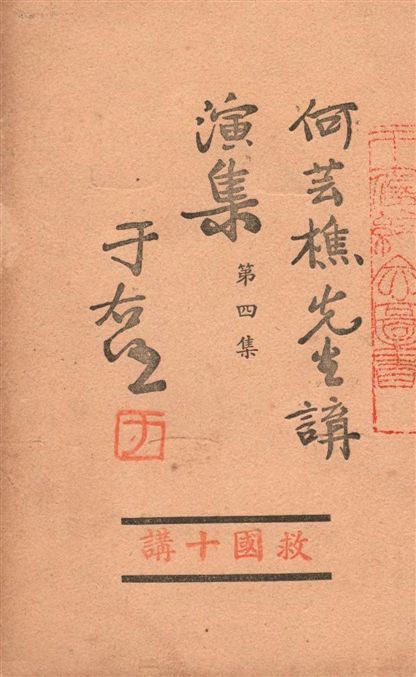 何芸樵先生講
演集
第四集
于右任
救國十講